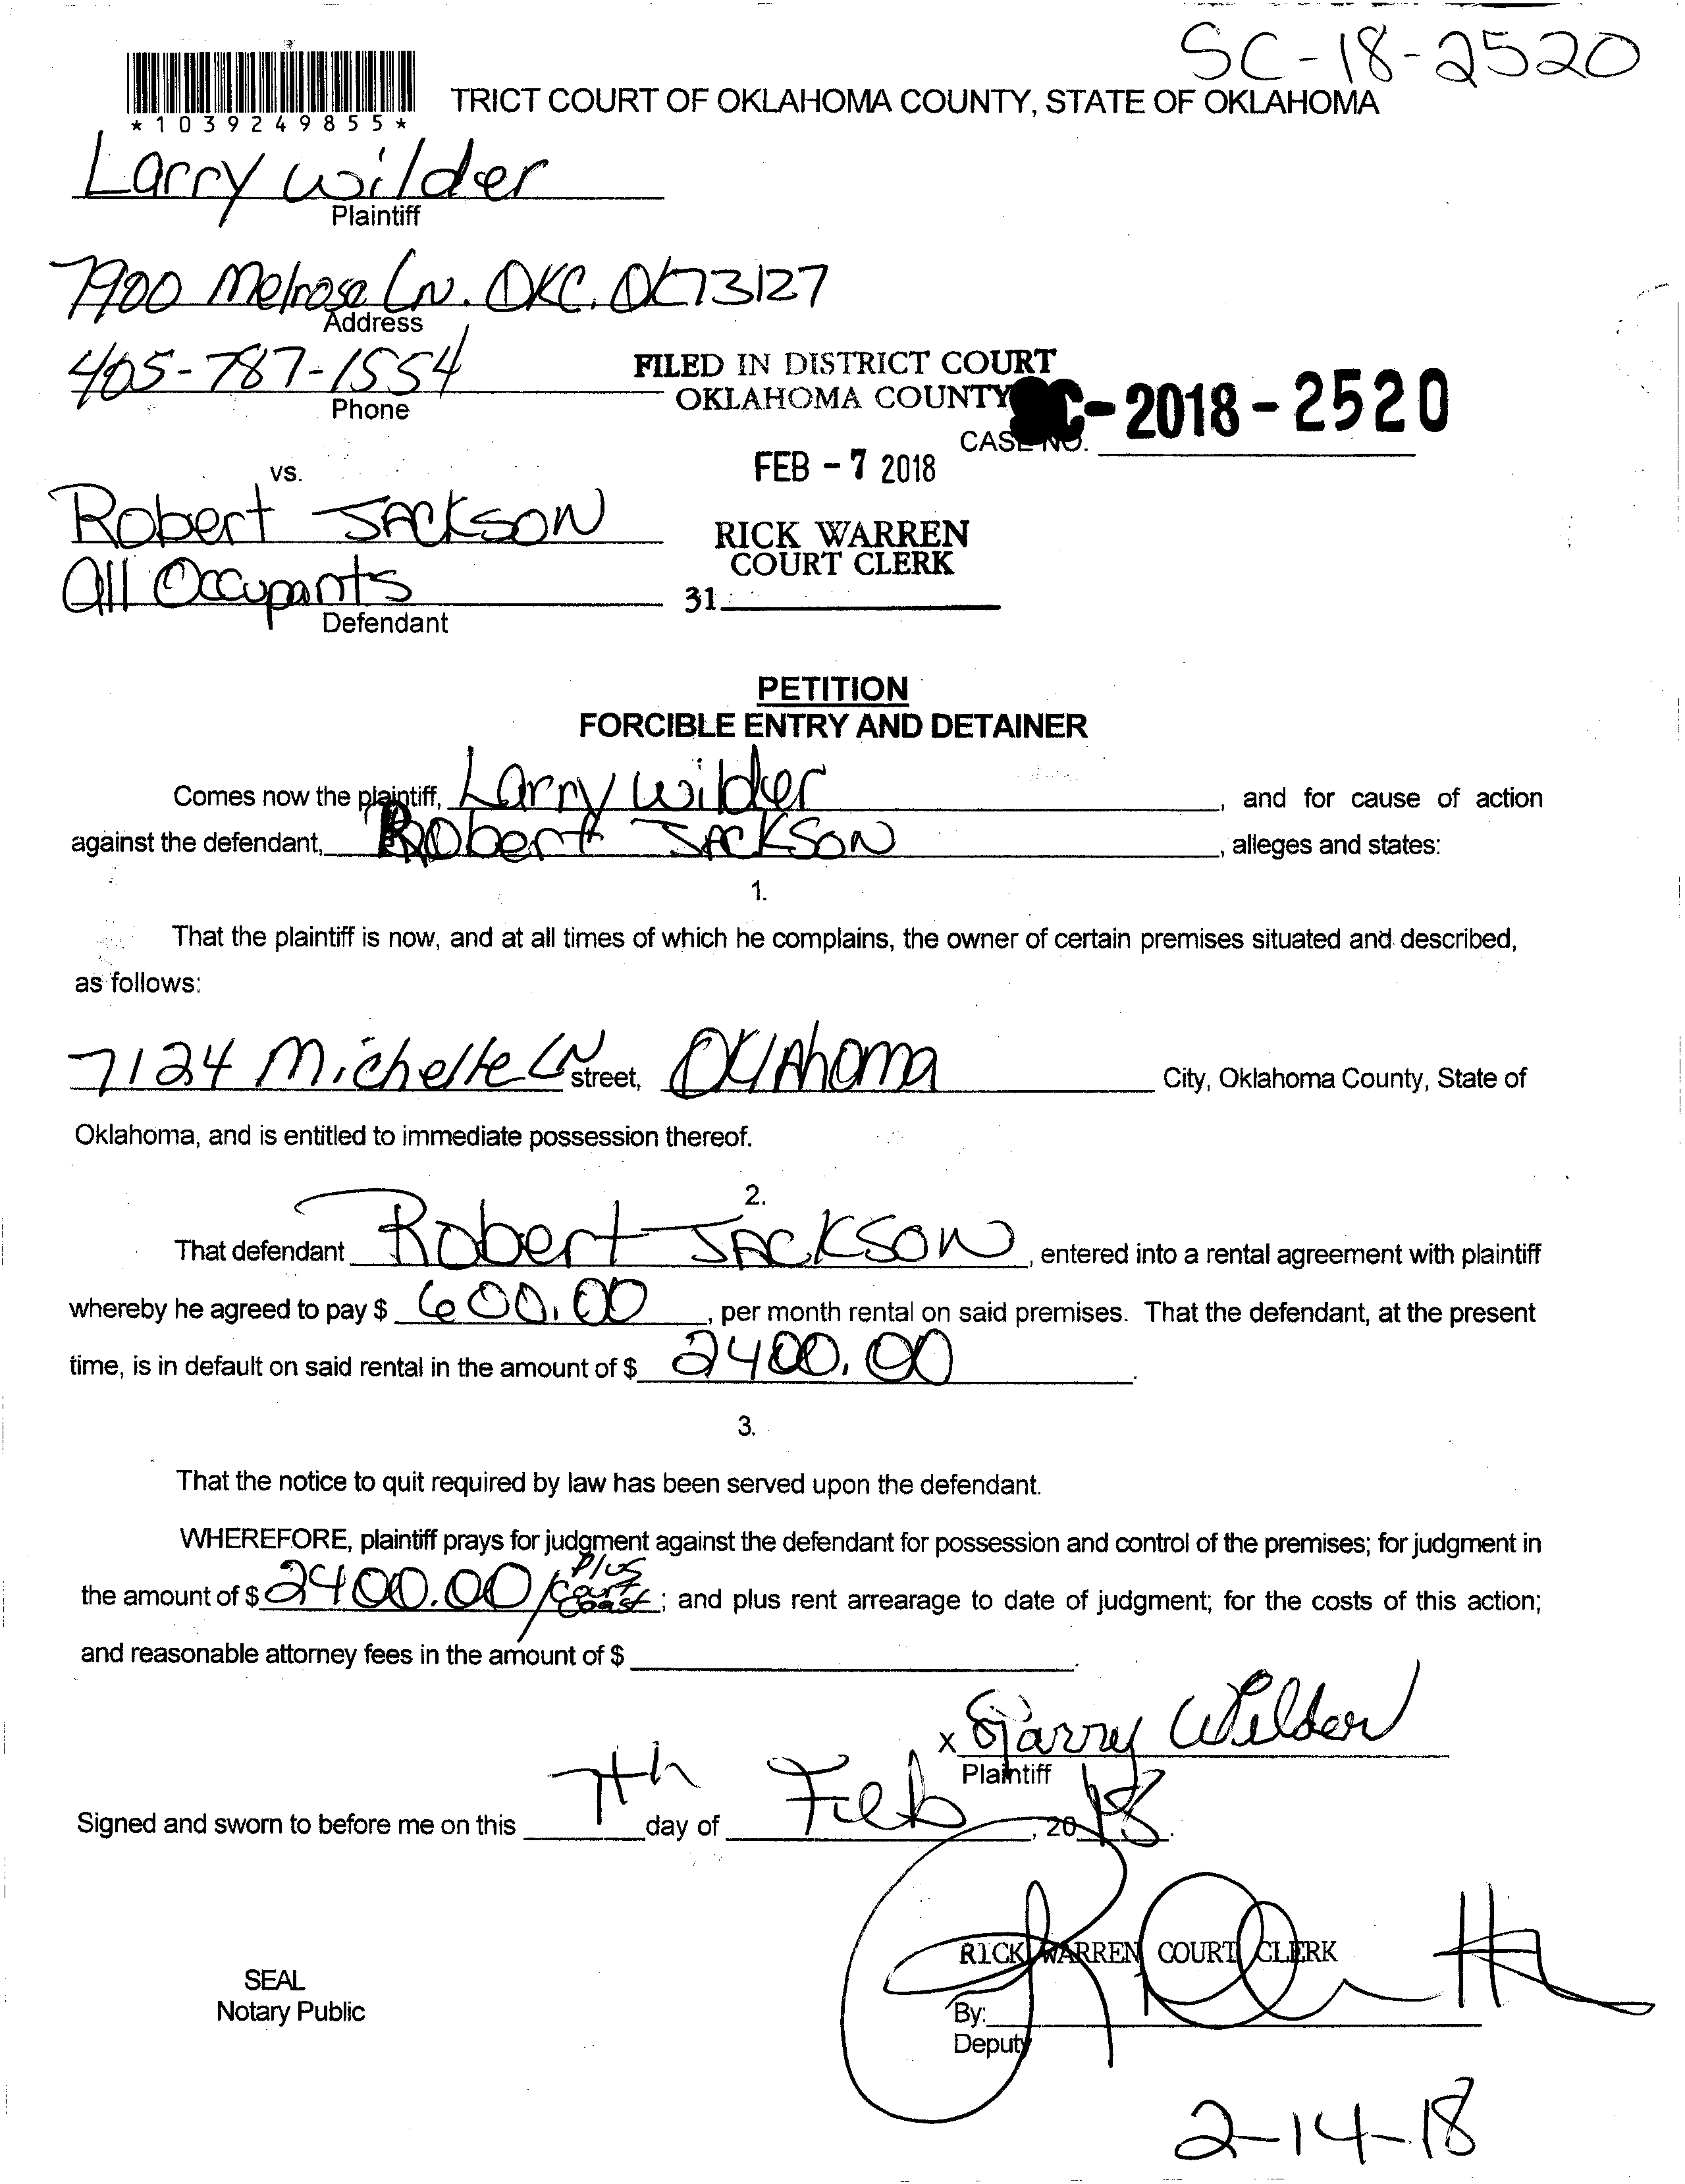 SC-18-2520
*1039249855*
TRICT COURT OF OKLAHOMA COUNTY, STATE OF OKLAHOMA
Larry Wilder
Plaintiff
7900 Melrose Ln. OKC. OK 73127
Address
405-787-1554
Phone
FILED IN DISTRICT COURT
OKLAHOMA COUNTY
CASE NO. SC-2018-2520
FEB - 7 2018
vs.
Robert JACKSON
RICK WARREN
COURT CLERK
All Occupants
31
Defendant
PETITION
FORCIBLE ENTRY AND DETAINER
Comes now the plaintiff, Larry Wilder, and for cause of action
against the defendant, Robert JACKSON, alleges and states:
1.
That the plaintiff is now, and at all times of which he complains, the owner of certain premises situated and described,
as follows:
7124 Michelle LN street, OKlAhoma City, Oklahoma County, State of
Oklahoma, and is entitled to immediate possession thereof.
2.
That defendant Robert JACKSON, entered into a rental agreement with plaintiff
whereby he agreed to pay $ 600.00, per month rental on said premises. That the defendant, at the present
time, is in default on said rental in the amount of $ 2400.00.
3.
That the notice to quit required by law has been served upon the defendant.
WHEREFORE, plaintiff prays for judgment against the defendant for possession and control of the premises; for judgment in
the amount of $ 2400.00/ plus court coast; and plus rent arrearage to date of judgment; for the costs of this action;
and reasonable attorney fees in the amount of $ .
x Larry Wilder
Plaintiff
Signed and sworn to before me on this 7th day of Feb, 2018.
RICK WARREN COURT CLERK
SEAL
Notary Public
By:
Deputy
2-14-18